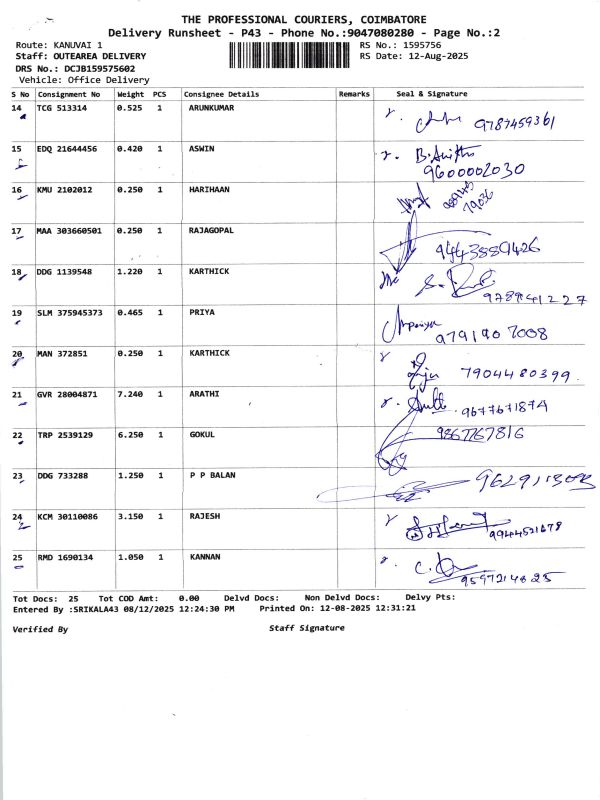 THE PROFESSIONAL COURIERS, COIMBATORE
Delivery Runsheet - P43 - Phone No.:9047080280 - Page No.:2
Route: KANUVAI 1 RS No.: 1595756
Staff: OUTEAREA DELIVERY RS Date: 12-Aug-2025
DRS No.: DCJB159575602
Vehicle: Office Delivery
S No Consignment No Weight PCS Consignee Details Remarks Seal & Signature
14 TCG 513314 0.525 1 ARUNKUMAR 9787459361
15 EDQ 21644456 0.420 1 ASWIN B.Anitha
9600002030
16 KMU 2102012 0.250 1 HARIHAAN
17 MAA 303660501 0.250 1 RAJAGOPAL 9443889426
18 DDG 1139548 1.220 1 KARTHICK
19 SLM 375945373 0.465 1 PRIYA 9791907008
20 MAN 372851 0.250 1 KARTHICK 7904480399
21 GVR 28004871 7.240 1 ARATHI 9677671874
22 TRP 2539129 6.250 1 GOKUL 9867767816
23 DDG 733288 1.250 1 P P BALAN
24 KCM 30110086 3.150 1 RAJESH
25 RMD 1690134 1.050 1 KANNAN
Tot Docs: 25 Tot COD Amt: 0.00 Delvd Docs: Non Delvd Docs: Delvy Pts:
Entered By :SRIKALA43 08/12/2025 12:24:30 PM Printed On: 12-08-2025 12:31:21
Verified By Staff Signature